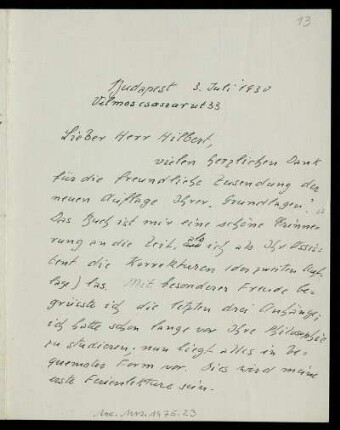 13
Budapest 3. Juli 1930
Vilmos császár ut 33
Lieber Herr Hilbert,
vielen herzlichen Dank
für die freundliche Zusendung der
neuen Auflage Ihrer „Grundlagen“.
Das Buch ist mir eine schöne Erinne-
rung an die Zeit, als ich als Ihr Assis-
tent die Korrekturen (der zweiten Auf-
lage) las. Mit besonderer Freude be-
grüsste ich die letzten drei Anhänge;
ich hatte schon lange vor Ihre Philosophie
zu studieren; nun liegt alles in be-
quemster Form vor. Dies wird meine
erste Ferienlektüre sein.